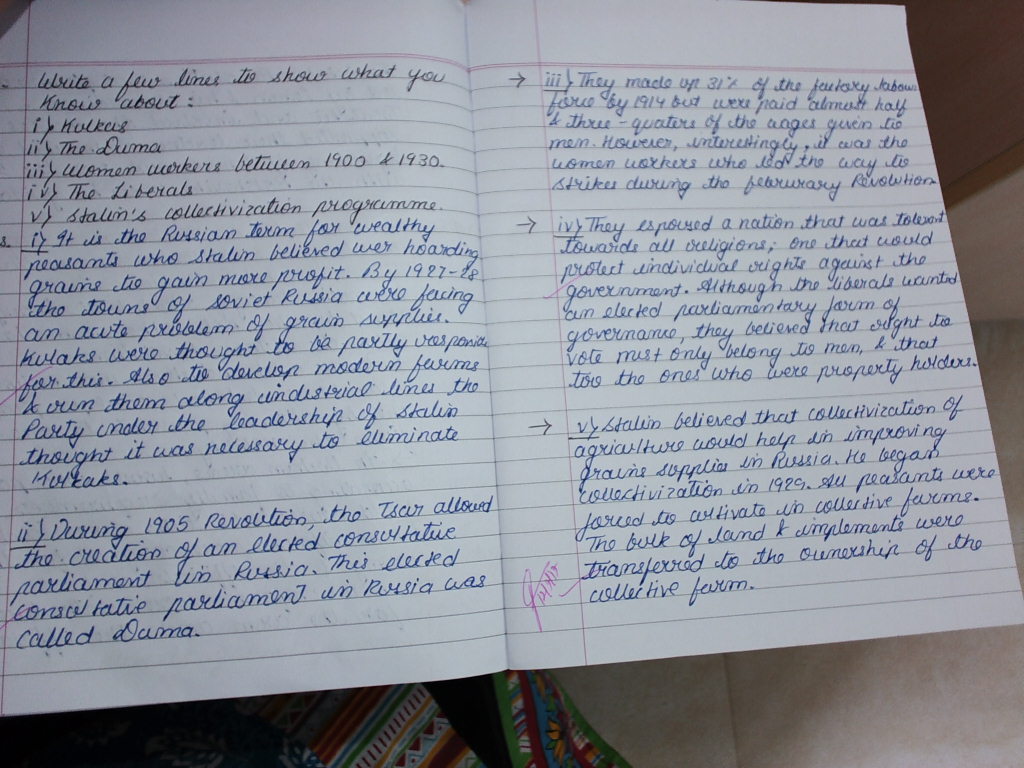 Write a few lines to show what you
know about:
i) Kulkas
ii) The Duma
iii) Women workers between 1900 & 1930.
iv) The Liberals
v) Stalin's collectivization programme.
i) It is the Russian term for wealthy
peasants who Stalin believed wer hoarding
grains to gain more profit. By 1927-28
the towns of Soviet Russia were facing
an acute problem of grain supplies.
Kulaks were thought to be partly
for this. Also to develop modern farms
& run them along industrial lines the
Party under the leadership of Stalin
thought it was necessary to eliminate
Kulkaks.
ii) During 1905 Revolution, the Tsar allowed
the creation of an elected consultative
parliament in Russia. This elected
consultatie parliament in Russia was
called Duma.
→ iii) They made up 31% of the factory labour
force by 1914 but were paid almost half
& three-quaters of the wages given to
men. However, interestingly, it was the
women workers who led the way to
strikes during the Feburary Revolution
→ iv) They espoused a nation that was tolerant
towards all religions; one that would
protect individual rights against the
government. Although the liberals wanted
an elected parliamentary form of
governance, they believed that right to
vote must only belong to men, & that
too the ones who were property holders.
→ v) Stalin believed that collectivization of
agriculture would help in improving
grains supplies in Russia. He began
collectivization in 1929. All peasants were
forced to cultivate in collective farms.
The bulk of land & implements were
transferred to the ownership of the
collective farm.